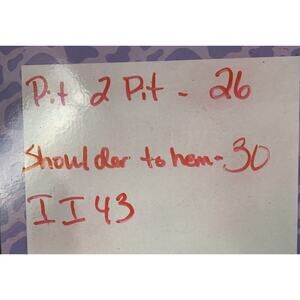 Pit 2 Pit - 26
Shoulder to hem - 30
II 43